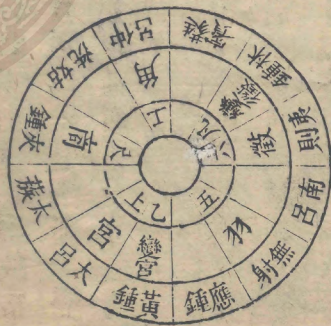 黃鍾
太呂
太蔟
夾鍾
姑洗
仲呂
蕤賓
林鍾
夷則
南呂
無射
應鍾
宮
商
角
變徵
徵
羽
變宮
上乙
尺
上
凡
五